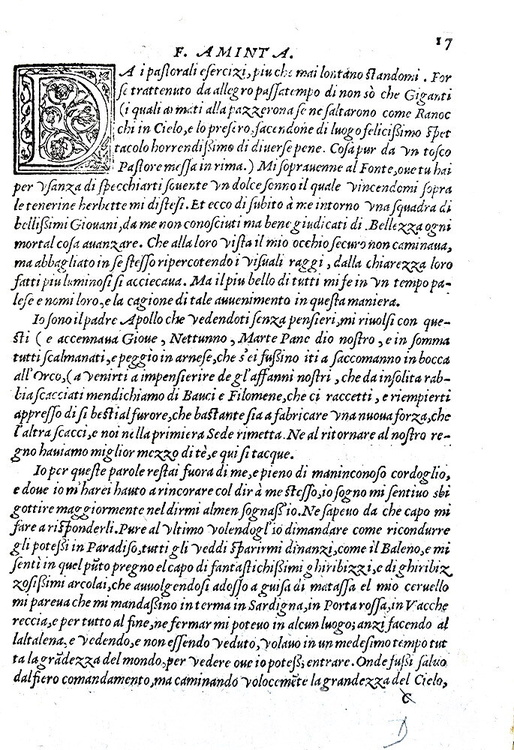 17
F. AMINTA.
DA i pastorali esercizi, piu che mai lontano standomi. For
se trattenuto da allegro passatempo di non sò che Giganti
(i quali armati alla pazzerona se ne saltarono come Ranoc
chi in Cielo, e lo presero, facendone di luogo felicissimo spet
tacolo horrendissimo di diuerse pene. Cosa pur da vn tosco
Pastore messa in rima.) Mi soprauenne al Fonte, oue tu hai
per vsanza di specchiarti souente vn dolce sonno il quale vincendomi sopra
le tenerine herbette mi distesi. Et ecco di subito à me intorno vna squadra di
bellissimi Giouani, da me non conosciuti ma bene giudicati di Bellezza ogni
mortal cosa auanzare. Che alla loro vista il mio occhio securo non caminaua,
ma abbagliato in se stesso ripercotendo i visuali raggi, dalla chiarezza loro
fatti piu luminosi si accecaua. Ma il piu bello di tutti mi fe in vn tempo pa-
lese e nomi loro, e la cagione di tale auuenimento in questa maniera.
Io sono il padre Apollo che vedendoti senza pensieri, mi riuolsi con que-
sti (e accennaua Gioue, Nettunno, Marte Pane dio nostro, e in somma
tutti scalmanati, e peggio in arnese, che s'ei fussino iti a saccomanno in bocca
all'Orco, (a venirti a impensierire de gl'affanni nostri, che da insolita rab-
bia scacciati mendichiamo di Bauci e Filomene, che ci raccetti, e riempierti
appresso di sì bestial furore, che bastante sia a fabricare vna nuoua forza, che
l'altra scacci, e noi nella primiera Sede rimetta. Ne al ritornare al nostro re-
gno hauiamo miglior mezzo di tè, e qui si tacque.
Io per queste parole restai fuora di me, e pieno di maninconoso cordoglio,
e doue io m'harei hauto a rincorare col dir à me stesso, io sogno mi sentiuo sbi
gottire maggiormente nel dirmi almen sognass'io. Ne sapeuo da che capo mi
fare a risponderli. Pure al vltimo volendogl'io dimandare come ricondurre
gli potessi in Paradiso, tutti gli veddi sparirmi dinanzi, come il Baleno, e mi
sentì in quel pũto pregno el capo di fantastichissimi ghiribizzi, e di ghiribiz
zosissimi arcolai, che auuolgendosi adosso a guisa di matassa el mio ceruello
mi pareua che mi mandassino in terma in Sardigna, in Porta rossa, in Vacche
reccia, e per tutto al fine, ne fermar mi poteuo in alcun luogo; anzi facendo al
laltalena, e vedendo, e non essendo veduto, volauo in un medesimo tempo tut
ta la grãdezza del mondo, per vedere oue io potessi entrare. Onde fussi saluo
dal fiero comandamento, ma caminando volocemẽte la grandezza del Cielo,
&
D